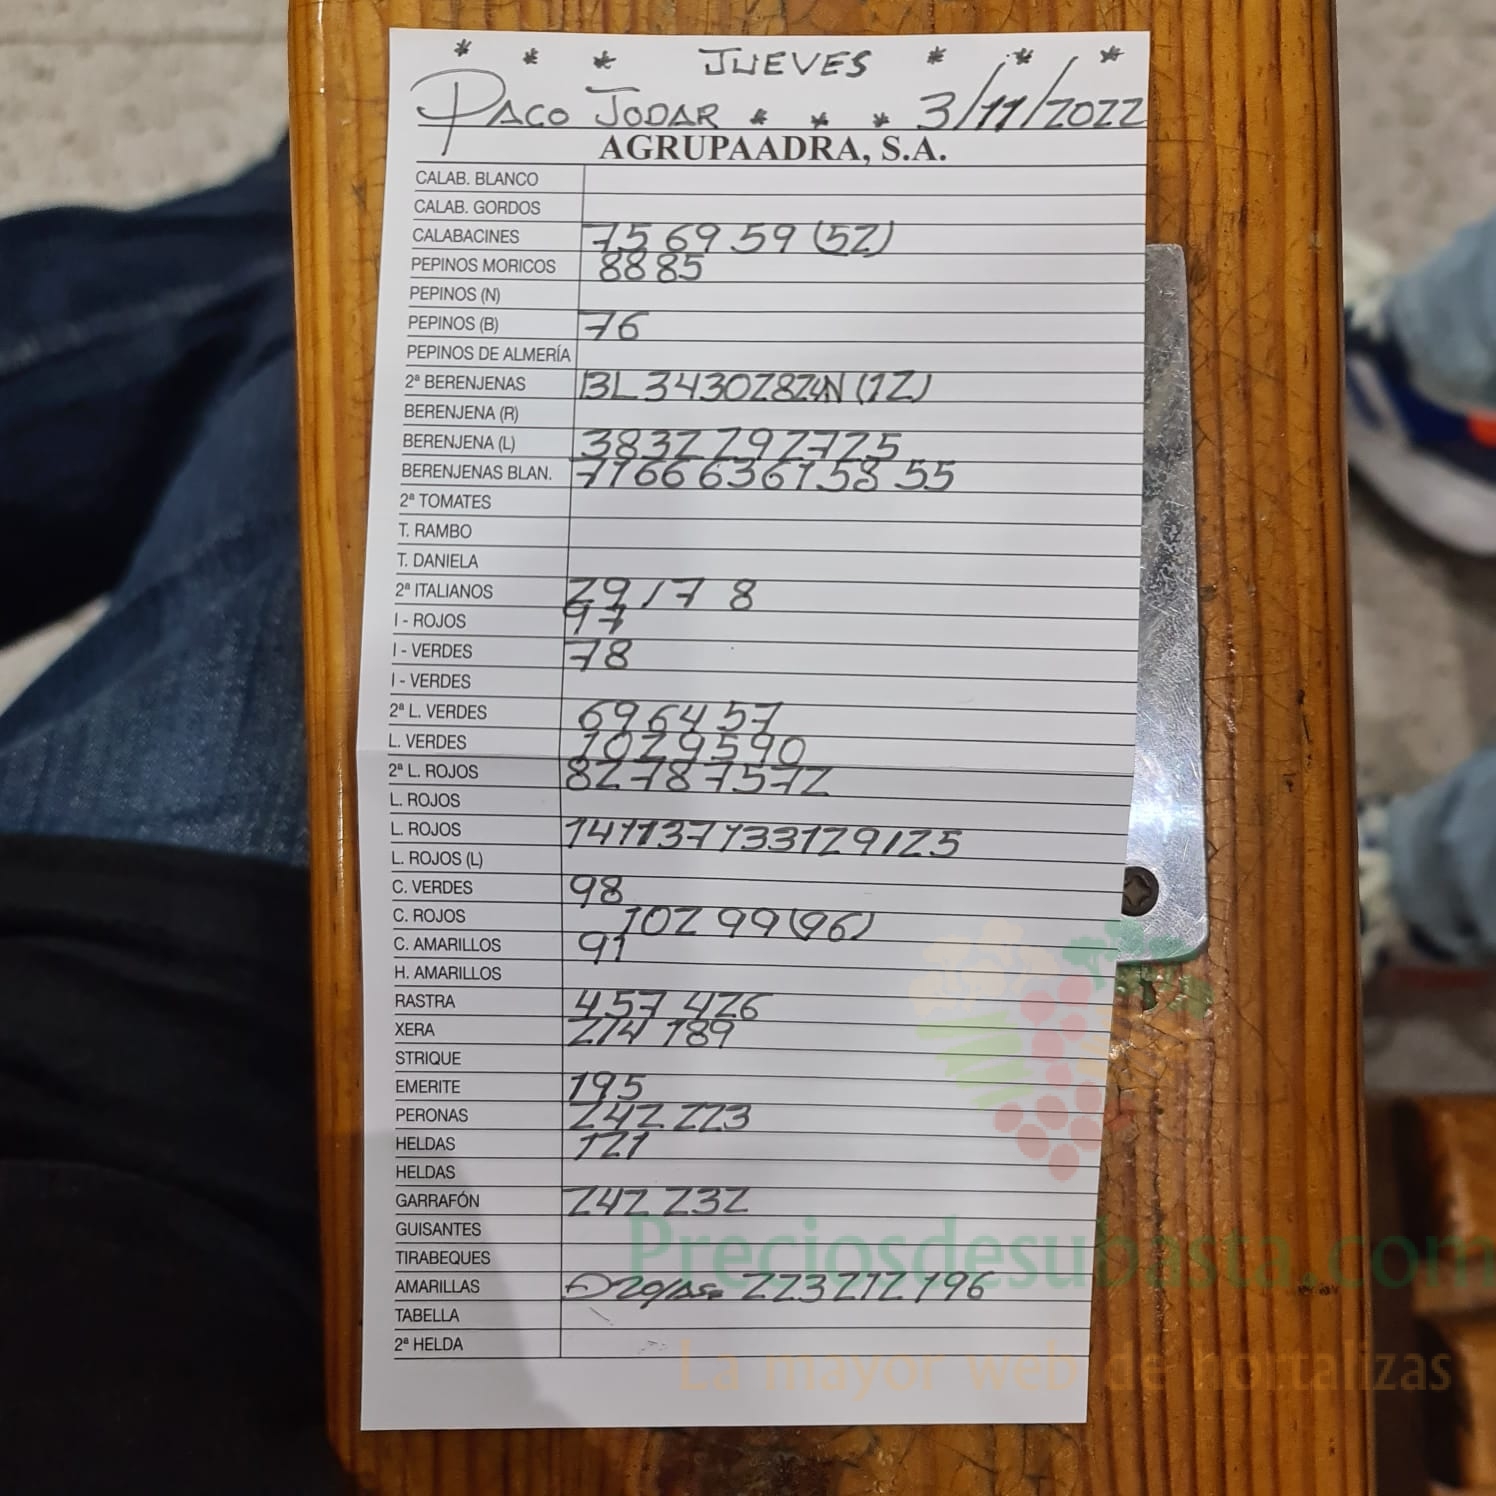 * * * JUEVES * * *
PACO JODAR * * * 3/11/2022
AGRUPAADRA, S.A.
CALAB. BLANCO
CALAB. GORDOS
CALABACINES 75 69 59 (52)
PEPINOS MORICOS 88 85
PEPINOS (N)
PEPINOS (B) 76
PEPINOS DE ALMERÍA
2ª BERENJENAS BL 34 30 28 24N (12)
BERENJENA (R)
BERENJENA (L) 38 32 29 27 25
BERENJENAS BLAN. 71 66 63 61 58 55
2ª TOMATES
T. RAMBO
T. DANIELA
2ª ITALIANOS 29 17 8
I - ROJOS 97
I - VERDES 78
I - VERDES
2ª L. VERDES 69 64 57
L. VERDES 102 95 90
2ª L. ROJOS 82 78 75 72
L. ROJOS
L. ROJOS 141 137 133 129 125
L. ROJOS (L)
C. VERDES 98
C. ROJOS 102 99 (96)
C. AMARILLOS 91
H. AMARILLOS
RASTRA 457 426
XERA 214 189
STRIQUE
EMERITE 195
PERONAS 242 223
HELDAS 121
HELDAS
GARRAFÓN 242 232
GUISANTES
TIRABEQUES
AMARILLAS 223 212 196
TABELLA
2ª HELDA
Preciosdesubasta.com
La mayor web de hortalizas